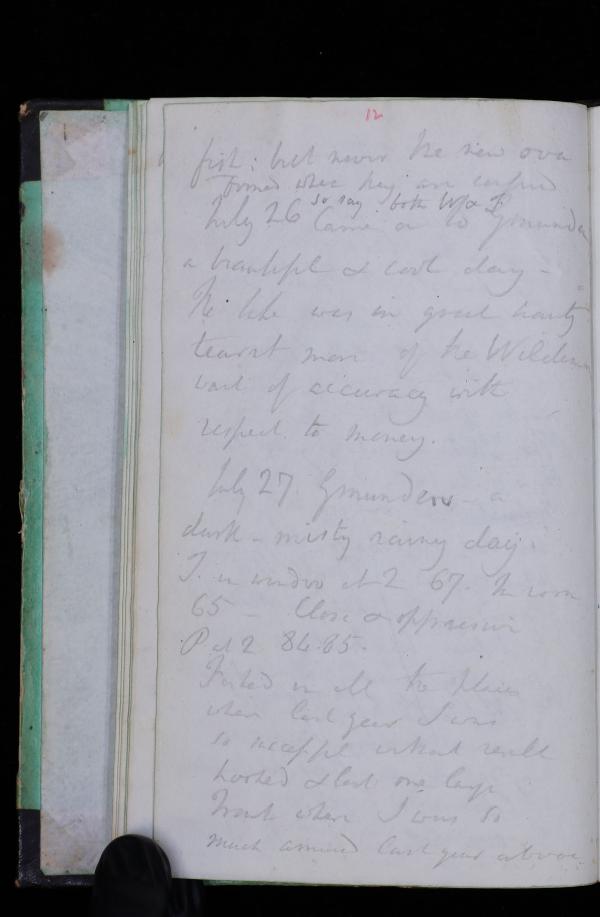 12
fish: but never the new ova
formed when they are confined
so say both W & I
July 26 Came on to Gmunden
a beautiful & cool day -
the lake was in great beauty
learnt more of the
want of accuracy with
respect to money.
July 27. Gmunden - a
dark - misty rainy day.
T. in window at 2 67. In room
65 - Close & oppressive
P at 2 84.65.
Fished in all the places
where last year I was
so successful without result
hooked & lost one large
trout where I was so
much amused last year above